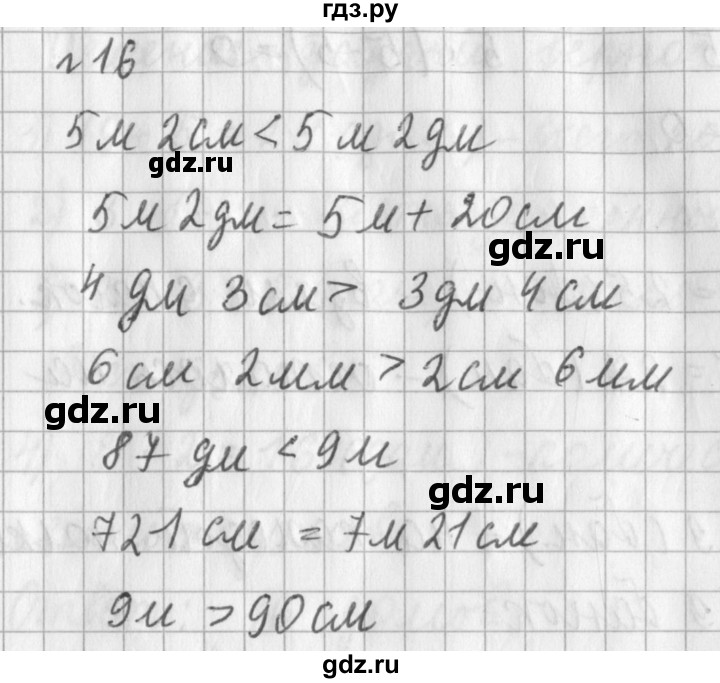 гдз.ру
№16
5м 2см < 5м 2дм
gdz.ru
5м 2дм = 5м + 20см
gdz.ru
4дм 3см > 3дм 4см
6см 2мм > 2см 6мм
gdz.ru
87дм < 9м
gdz.ru
721см = 7м 21см
9м > 90см
gdz.ru